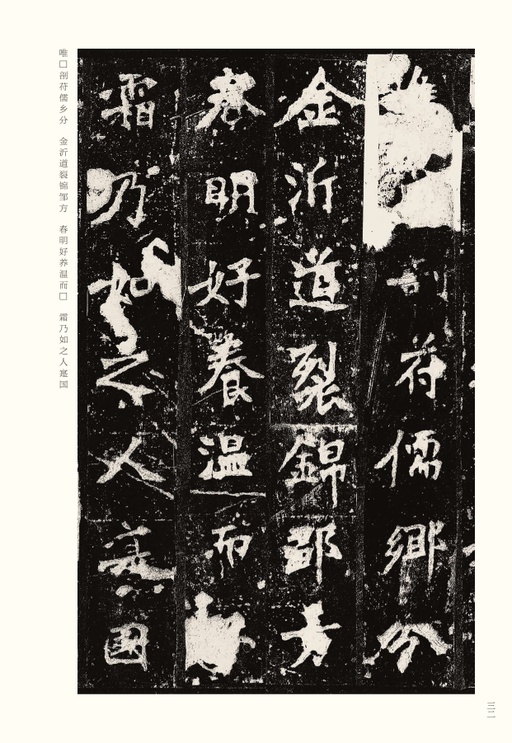 剖符儒鄉分
金沂道裂錦鄒方
春明好養温而
霜乃如之人寔国
唯□剖苻儒乡分　金沂道裂锦邹方　春明好养温而□　霜乃如之人寔国
三二